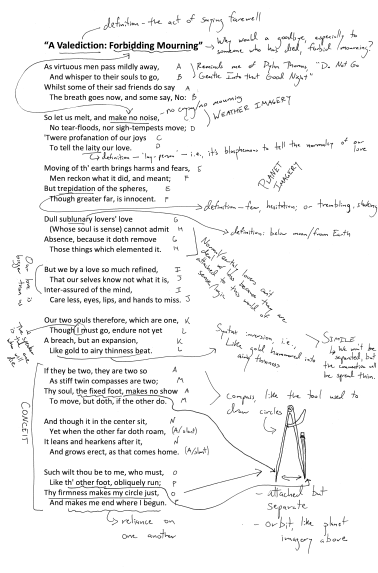 definition - the act of saying farewell
"A Valediction: Forbidding Mourning"
Why would a goodbye, especially to
someone who has died, forbid mourning?
As virtuous men pass mildly away, A
And whisper to their souls to go, B
Whilst some of their sad friends do say A
The breath goes now, and some say, No: B
Reminds me of Dylan Thomas, "Do Not Go
Gentle Into that Good Night"
no crying/no mourning
So let us melt, and make no noise, C
No tear-floods, nor sigh-tempests move; D
'Twere profanation of our joys C
To tell the laity our love. D
WEATHER IMAGERY
definition - 'lay-person' - i.e., it's blasphemous to tell the normalcy of our
love
Moving of th' earth brings harms and fears, E
Men reckon what it did, and meant; F
But trepidation of the spheres, E
Though greater far, is innocent. F
PLANET
IMAGERY
definition - fear, hesitation; or trembling, shaking
Dull sublunary lovers' love G
(Whose soul is sense) cannot admit H
Absence, because it doth remove G
Those things which elemented it. H
definition: below moon/from Earth
Normal/earthly lovers can't
deal with this because they are
attached to this world of
sense/sin
But we by a love so much refined, I
That our selves know not what it is, J
Inter-assured of the mind, I
Care less, eyes, lips, and hands to miss. J
Our love is
bigger than us
Our two souls therefore, which are one, K
Though I must go, endure not yet L
A breach, but an expansion, K
Like gold to airy thinness beat. L
The speaker
is the one
who will
die
Syntax inversion, i.e.,
Like gold hammered into
airy thinness
SIMILE
We won't be
separated, but
the connection will
be spread thin.
If they be two, they are two so A
As stiff twin compasses are two; M
Thy soul, the fixed foot, makes no show A
To move, but doth, if the other do. M
compass, like the tool used to
draw circles
CONCEIT
And though it in the center sit, N
Yet when the other far doth roam, (A/slant)
It leans and hearkens after it, N
And grows erect, as that comes home. (A/slant)
Such wilt thou be to me, who must, O
Like th' other foot, obliquely run; P
Thy firmness makes my circle just, O
And makes me end where I begun. P
reliance on
one another
- attached but
separate
- orbit, like planet
imagery above